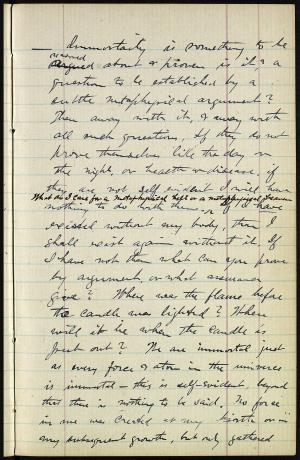 — Immortality is something to be
reasoned
argued about & proven is it? a
question to be established by a
subtle metaphysical argument?
Then away with it, & away with
all such questions. If they do not
prove themselves like the day or
the night, or health or disease, if
they are not self evident I will have
What do I care for a metaphysical hell or a metaphysical heaven
nothing to do with them. If I have
existed without my body, then I
shall exist again without it. If
I have not then what can you prove
by argument, or what assurance
give? Where was the flame before
the candle was lighted? Where
will it be when the candle is
put out? We are immortal just
as every force & atom in the universe
is immortal — this is self-evident, beyond
that there is nothing to be said. No force
in me was created at my birth or in
any subsequent growth, but only gathered